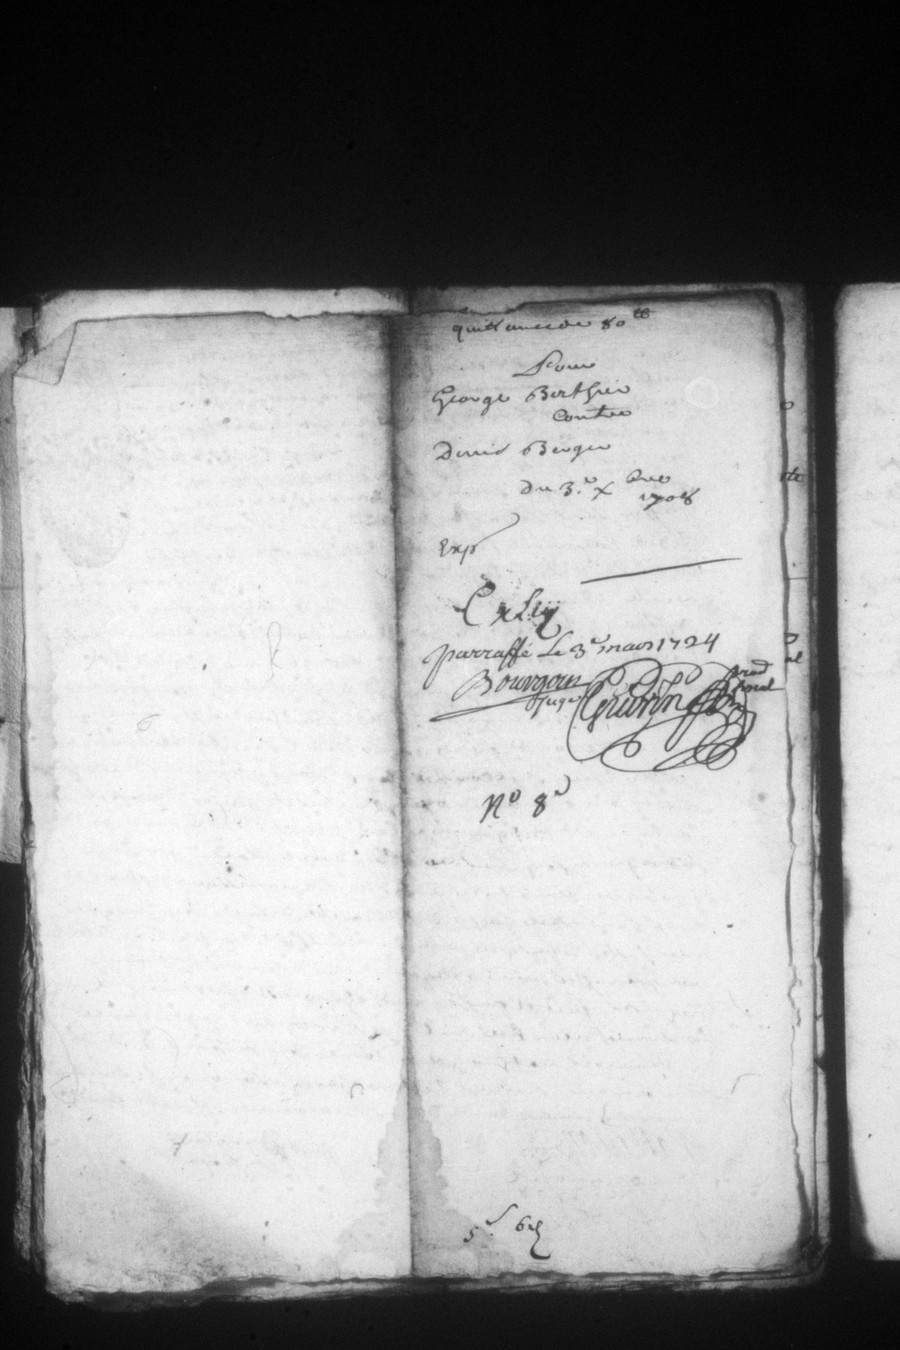 quittance de 80 tt
Pour
George Berthie
Contre
Denis Berger
du 3.e Xbre
1708
Exp
parraffé Le 3e mars 1724
Bourgoin
Juge
Guerin
No 8e
5 s 6 d